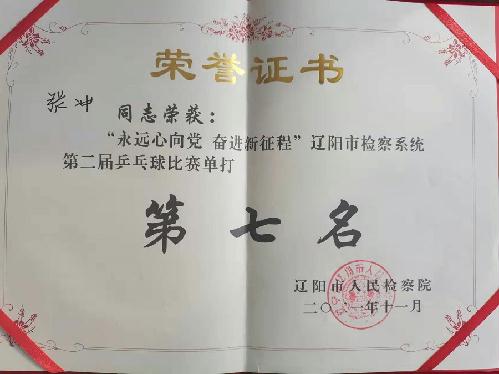 荣誉证书
张冲 同志荣获：
“永远心向党 奋进新征程”辽阳市检察系统
第二届乒乓球比赛单打
第七名
辽阳市人民检察院
二〇二一年十一月